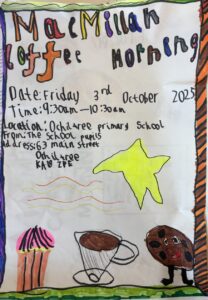 MacMillan
Coffee Morning
Date: Friday 3rd October 2025
Time: 9:30am - 10:30am
Location: Ochiltree primary School
From: The school pupils
address: 63 main street
Ochiltree
KA18 2PE